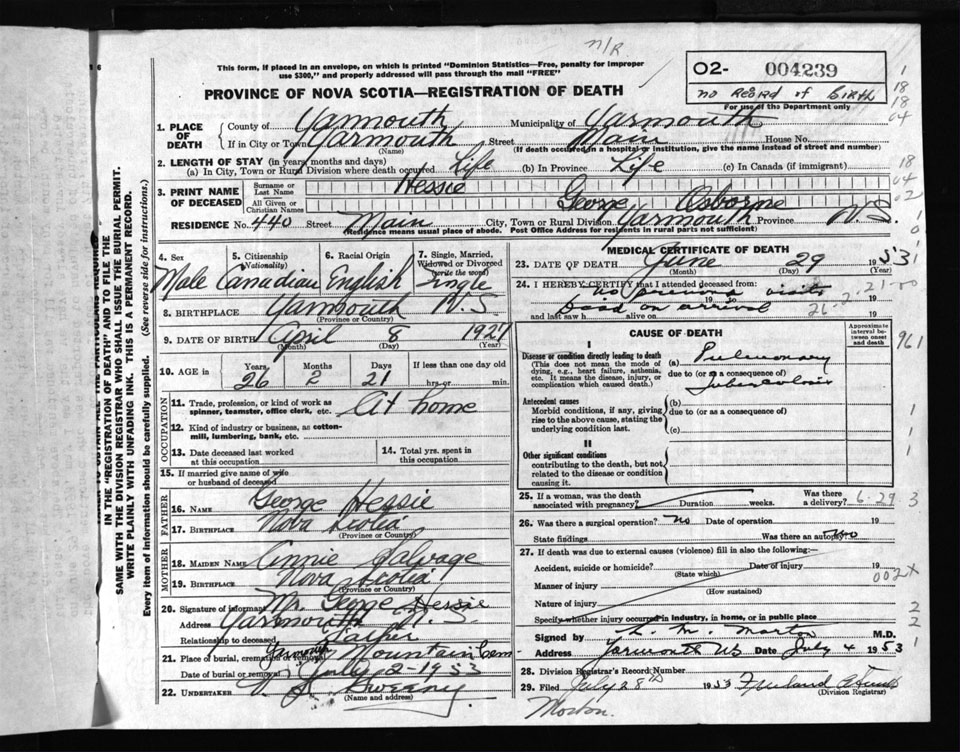 n/R
This form, if placed in an envelope, on which is printed "Dominion Statistics—Free, penalty for improper
use $300," and properly addressed will pass through the mail "FREE"
PROVINCE OF NOVA SCOTIA—REGISTRATION OF DEATH
O2- 004239
no Record of Birth
For use of the Department only
1. PLACE OF DEATH County of Yarmouth Municipality of Yarmouth
If in City or Town Yarmouth Street Main House No.
(Name) (If death occurred in a hospital or institution, give the name instead of street and number)
2. LENGTH OF STAY (in years, months and days)
(a) In City, Town or Rural Division where death occurred Life (b) In Province Life (c) In Canada (if immigrant)
3. PRINT NAME OF DECEASED Surname or Last Name Hessie
All Given or Christian Names George Osborne
RESIDENCE No. 440 Street Main City, Town or Rural Division Yarmouth Province N.S.
(Residence means usual place of abode. Post Office Address for residents in rural parts not sufficient)
4. Sex 5. Citizenship (Nationality) 6. Racial Origin 7. Single, Married, Widowed or Divorced (write the word)
Male Canadian English Single
8. BIRTHPLACE Yarmouth N.S.
(Province or Country)
9. DATE OF BIRTH April 8 1927
(Month) (Day) (Year)
10. AGE in Years Months Days If less than one day old
26 2 21 hrs. or min.
OCCUPATION
11. Trade, profession, or kind of work as spinner, teamster, office clerk, etc. At home
12. Kind of industry or business, as cotton-mill, lumbering, bank, etc.
13. Date deceased last worked at this occupation
14. Total yrs. spent in this occupation
15. If married give name of wife or husband of deceased
FATHER
16. NAME George Hessie
17. BIRTHPLACE Nova Scotia
(Province or Country)
MOTHER
18. MAIDEN NAME Annie Salvage
19. BIRTHPLACE Nova Scotia
(Province or Country)
20. Signature of informant Mr. George Hessie
Address Yarmouth N.S.
Relationship to deceased Father
21. Place of burial, cremation or removal Yarmouth Mountain Cem
Date of burial or removal July 2-1953
22. UNDERTAKER Sweeny
(Name and address)
MEDICAL CERTIFICATE OF DEATH
23. DATE OF DEATH June 29 1953
(Month) (Day) (Year)
24. I HEREBY CERTIFY that I attended deceased from:
no previous visits
19 to 19
and last saw h alive on 19
Dead on arrival
CAUSE OF DEATH
Approximate interval between onset and death
I
Disease or condition directly leading to death (a) Pulmonary
(This does not mean the mode of dying, e.g., heart failure, asthenia, etc. It means the disease, injury, or complication which caused death.)
due to (or as a consequence of)
Tuberculosis
Antecedent causes (b)
Morbid conditions, if any, giving rise to the above cause, stating the underlying condition last.
due to (or as a consequence of)
(c)
II
Other significant conditions
contributing to the death, but not related to the disease or condition causing it.
25. If a woman, was the death associated with pregnancy? Duration weeks. Was there a delivery?
6-29
26. Was there a surgical operation? No Date of operation 19
State findings Was there an autopsy? No
27. If death was due to external causes (violence) fill in also the following:—
Accident, suicide or homicide? Date of injury 19
(State which)
002X
Manner of injury
(How sustained)
Nature of injury
Specify whether injury occurred in industry, in home, or in public place
Signed by L. M. Morton M.D.
Address Yarmouth NS Date July 4 1953
28. Division Registrar's Record Number
29. Filed July 28th 1953
(Division Registrar)
Morton.
IN THE "REGISTRATION OF DEATH" AND TO FILE THE
SAME WITH THE DIVISION REGISTRAR WHO SHALL ISSUE THE BURIAL PERMIT.
WRITE PLAINLY WITH UNFADING INK. THIS IS A PERMANENT RECORD.
Every item of information should be carefully supplied. (See reverse side for instructions.)